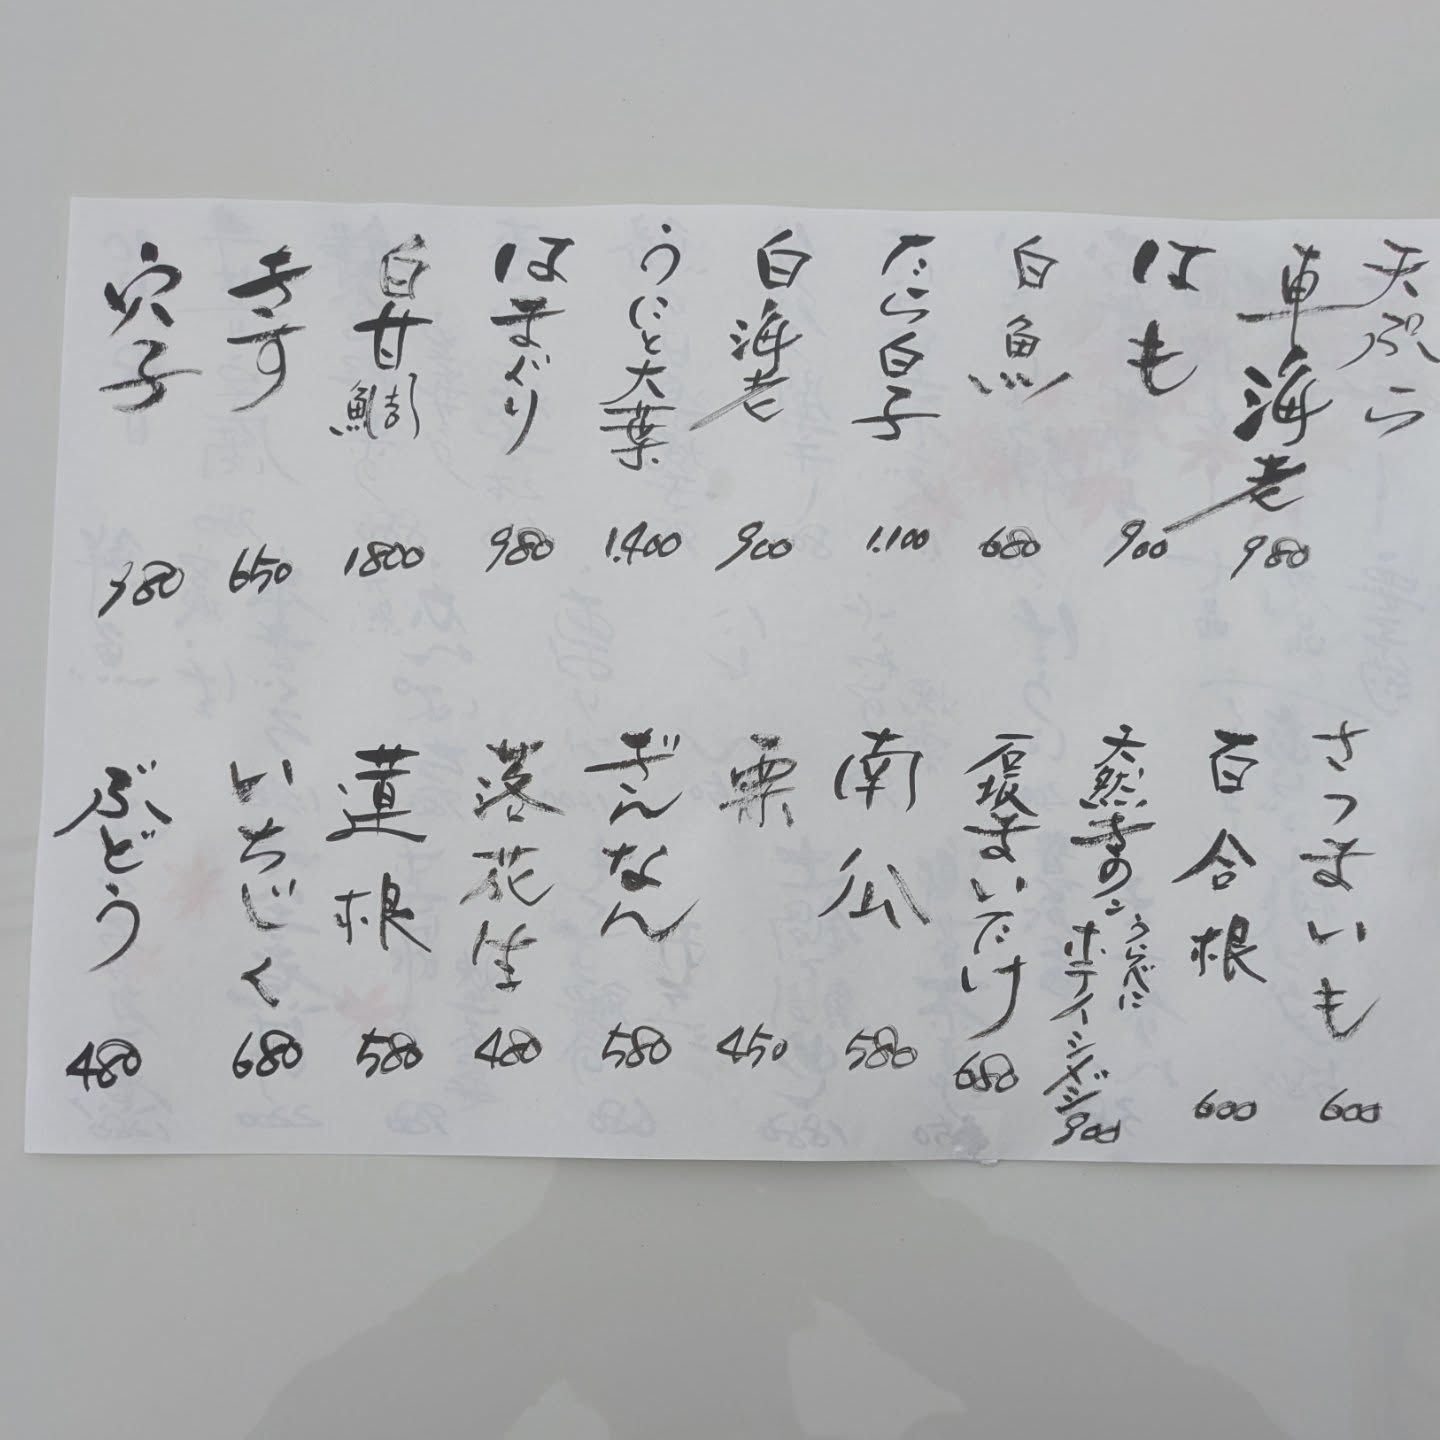 天ぷら
車海老 980
はも 900
白魚 680
たら白子 1.100
白海老 900
うにと大葉 1.400
はまぐり 980
白甘鯛 1800
きす 650
穴子 980
さつまいも 600
百合根 600
天然きのこ 900
石坂まいたけ 680
南瓜 580
栗 450
ぎんなん 580
落花生 480
蓮根 580
いちじく 680
ぶどう 480